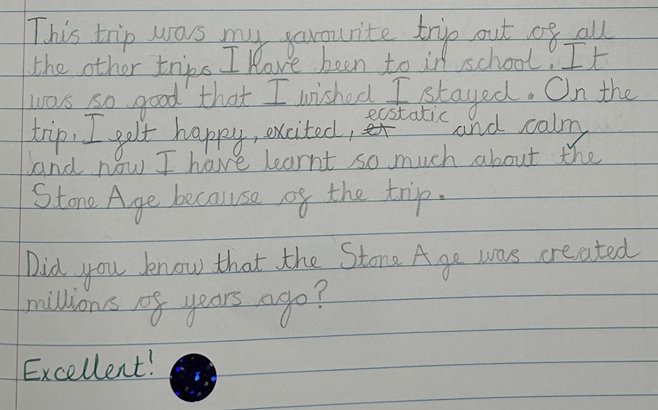 This trip was my favourite trip out of all
the other trips I have been to in school. It
was so good that I wished I stayed. On the
ecstatic
trip, I felt happy, excited, ex and calm
and now I have learnt so much about the
Stone Age because of the trip.
Did you know that the Stone Age was created
millions of years ago?
Excellent!